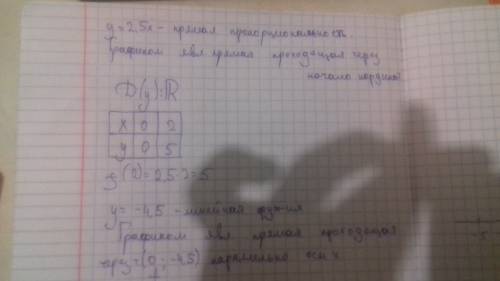 y = 2,5x - прямая пропорциональность.
Графиком явл. прямая проходящая через
начало кординат
D(y): R
x 0 2
y 0 5
y(2) = 2,5·2 = 5
y = -4,5 - линейная функция
Графиком явл прямая проходящая
через (0; -4,5) параллельно оси x
-5